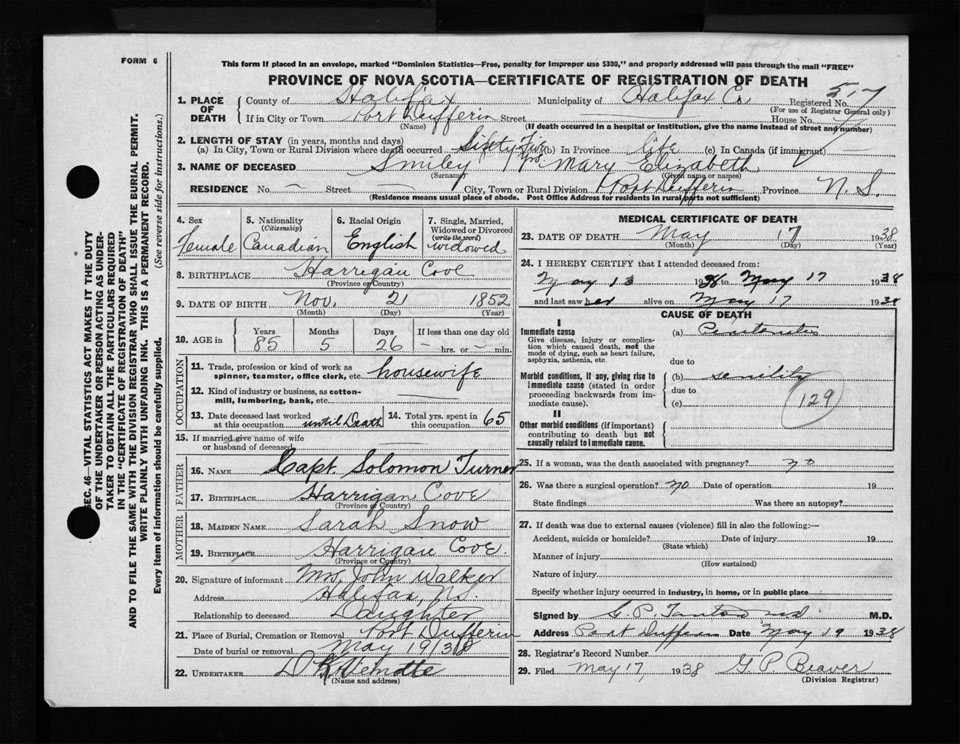 FORM 6
This form if placed in an envelope, marked "Dominion Statistics—Free, penalty for improper use $300," and properly addressed will pass through the mail "FREE"
PROVINCE OF NOVA SCOTIA—CERTIFICATE OF REGISTRATION OF DEATH
1. PLACE OF DEATH
County of Halifax Municipality of Halifax Co Registered No. 517
(For use of Registrar General only)
If in City or Town Port Dufferin Street House No.
(Name) (If death occurred in a hospital or institution, give the name instead of street and number)
2. LENGTH OF STAY (in years, months and days)
(a) In City, Town or Rural Division where death occurred Sixty Five yrs. (b) In Province life (c) In Canada (if immigrant)
3. NAME OF DECEASED Smiley Mary Elizabeth
(Surname) (Given name or names)
RESIDENCE No. — Street — City, Town or Rural Division Port Dufferin Province N. S.
(Residence means usual place of abode. Post Office Address for residents in rural parts not sufficient)
4. Sex 5. Nationality (Citizenship) 6. Racial Origin 7. Single, Married, Widowed or Divorced (write the word)
Female Canadian English widowed
8. BIRTHPLACE Harrigan Cove
(Province or Country)
9. DATE OF BIRTH Nov. 21 1852
(Month) (Day) (Year)
10. AGE in Years Months Days If less than one day old
85 5 26 — hrs. or — min.
OCCUPATION
11. Trade, profession or kind of work as spinner, teamster, office clerk, etc. housewife
12. Kind of industry or business, as cotton-mill, lumbering, bank, etc.
13. Date deceased last worked at this occupation until Death 14. Total yrs. spent in this occupation 65
15. If married give name of wife or husband of deceased
FATHER
16. NAME Capt. Solomon Turner
17. BIRTHPLACE Harrigan Cove
(Province or Country)
MOTHER
18. MAIDEN NAME Sarah Snow
19. BIRTHPLACE Harrigan Cove.
(Province or Country)
20. Signature of informant Mrs. John Walker
Address Halifax, N.S.
Relationship to deceased Daughter
21. Place of Burial, Cremation or Removal Port Dufferin
Date of burial or removal May 19/38
22. UNDERTAKER
(Name and address)
MEDICAL CERTIFICATE OF DEATH
23. DATE OF DEATH May 17 1938
(Month) (Day) (Year)
24. I HEREBY CERTIFY that I attended deceased from:
May 13 1938 to May 17 1938
and last saw her alive on May 17 1938
CAUSE OF DEATH
I
Immediate cause (a)
Give disease, injury or complication which caused death, not the mode of dying, such as heart failure, asphyxia, asthenia, etc.
due to
Morbid conditions, if any, giving rise to immediate cause (stated in order proceeding backwards from immediate cause). (b) senility
due to
(c)
129
II
Other morbid conditions (if important) contributing to death but not causally related to immediate cause.
25. If a woman, was the death associated with pregnancy? no
26. Was there a surgical operation? no Date of operation 19
State findings Was there an autopsy?
27. If death was due to external causes (violence) fill in also the following:—
Accident, suicide or homicide? Date of injury 19
(State which)
Manner of injury
(How sustained)
Nature of injury
Specify whether injury occurred in industry, in home, or in public place
Signed by M.D.
Address Port Dufferin Date May 19 1938
28. Registrar's Record Number
29. Filed May 17, 1938 G. P. Beaver
(Division Registrar)
SEC. 46—VITAL STATISTICS ACT MAKES IT THE DUTY
OF THE UNDERTAKER OR PERSON ACTING AS UNDER-
TAKER TO OBTAIN ALL THE PARTICULARS REQUIRED
IN THE "CERTIFICATE OF REGISTRATION OF DEATH"
AND TO FILE THE SAME WITH THE DIVISION REGISTRAR WHO SHALL ISSUE THE BURIAL PERMIT.
WRITE PLAINLY WITH UNFADING INK. THIS IS A PERMANENT RECORD.
Every item of information should be carefully supplied. (See reverse side for instructions.)